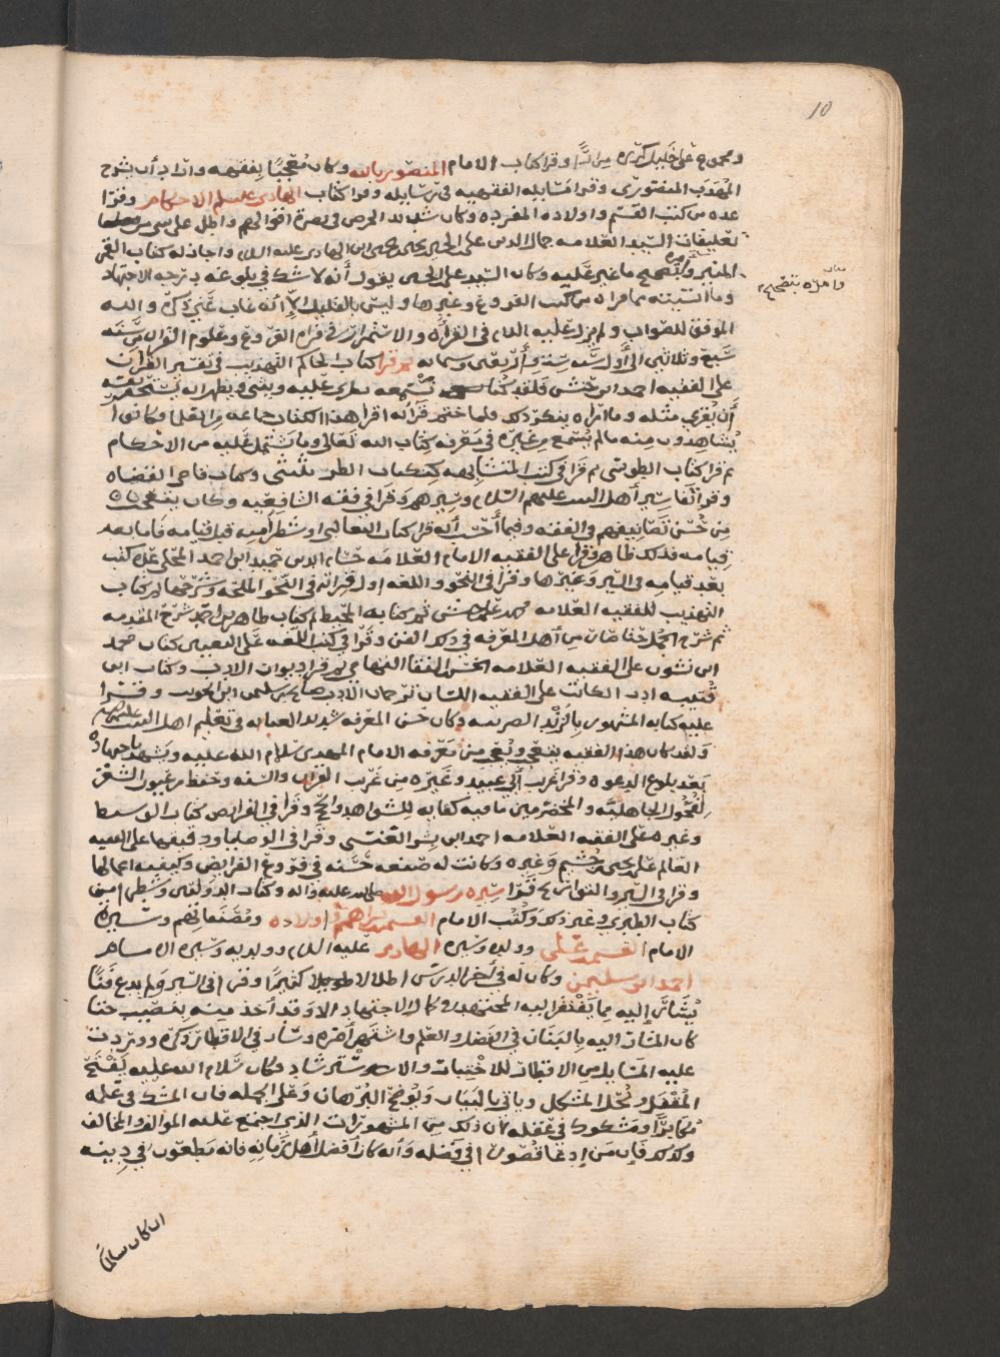 10
ومجموع علي خليل وقرا كتاب الامام المنصور بالله وكان معجبًا بفقهه واراد أن يشرح
المهذب المنصوري وقرا مسايله الفقهيه في رسايله وقرا كتاب الهادي عليلم الاحكام وقرا
عده من كتب القسم واولاده المفرده وكان شديد الحرص في نصرة اقوالهم واطلع على شي من
تعليقات السيد العلامه جمال الدين علي بن الحسين بن يحيى بن يحيى ابن الهادي عليه السلام واجاز له كتاب القمر
المنير وتصحيح ما غير عليه وكان السيد علي بن الحسين يقول أنه لا شك في بلوغه درجه الاجتهاد
واهله بتصحيح
وما اثبته مما قراه من كتب الفروع وغيرها وليس بالقليل الا أنه غاب عني ذكره والله
الموفق للصواب ولم يزل عليه السلام في القراه والاستمرار في قراه الفروع وعلوم القران من سنه
سبع وثلاثين الى أول سنه ست وأربعين وستمايه ثم قرا كتاب الحاكم التهذيب في تفسير القران
على الفقيه احمد ابن حنش فلقد كنا نسمعه يطري عليه ويثني ويظهر انه يستحقر نفسه
أن يقري مثله وما اقراه ينكر ذلك ولما ختم قراته اقرا هذا الكتاب جماعه من العلما وكانوا
يشاهدون منه مالم يسمع من غيره في معرفه كتاب الله تعالى وما يشتمل عليه من الاحكام
ثم قرا كتاب الطوسي ثم قرا في كتب المتشابه ككتاب الطريثيثي وكتاب قاضي القضاه
وقرا تفاسير أهل البيت عليهم السلام وغيرهم وقرا في فقه الشافعيه وكان يتعجب
من حسن تصانيفهم في الفقه وفيما أحسب أنه قرا كتاب الثعالبي او شطرا منه قبل قيامه فاما بعد
قيامه فذلك ظاهر وقرا على الفقيه الامام العلامه حسام الدين حميد ابن احمد المحلي عدة كتب
بعد قيامه في السير وغيرها وقرا في النحو واللغه اول قراته في النحو الملحه وشرحها ثم كتاب
التهذيب للفقيه العلامه محمد بن علي بن حنش ثم كتابه المحيط ثم كتاب طاهر بن احمد شرح المقدمه
ثم شرح الجمل حتى صار من أهل المعرفه في ذلك الفن وقرا في كتب اللغه على الفقيهين كتاب محمد
ابن نشوان على الفقيه العلامه الحسن التهامي ثم قرا ديوان الادب وكتاب ابن
قتيبه ادب الكاتب على الفقيه اللسان ترجمان الادب صالح بن سليمن ابن الحويت وقرا
عليه كتابه المشهور بالزند الصريبه وكان حسن المعرفه شديد العنايه في تعليم اهل البيت
ولقد كان هذا الفقيه يتعجب ويُعجب من معرفه الامام المهدي سلام الله عليه ويشهد باجتهاده
بعد بلوغ الدعوه وقرا غريب أبي عبيد وغيره من غريب القران والسنه وحفظ من عيون الشعر
لفحول الجاهليه والمخضرمين ما فيه كفايه للشواهد والحجج وقرا في الفرايض كتاب الوسيط
وغيره على الفقيه العلامه احمد ابن نسر العنسي وقرا في الوصايا ودقيقها على الفقيه
العالم علي بن يحيى وغيره وكانت له صنعه حسنه في فروع الفرايض وكيفيه اعمالها
وقرا في السير والتواريخ قرا سيره رسول الله صلى الله عليه واله وكتاب الدولتين وشطرا من
كتاب الطبري وغير ذلك وكتب الامام القسم بن ابراهيم واولاده ومصنفاتهم وسيرة
الامام القسم بن علي وولده وسيره الهادي عليه السلام وولديه وسيره الامام
احمد ابن سليمن وكان له في أخر الدرس اطلالا طويلا كثيرًا وقرا في السير ولم يدع فنًا
يشار إليه مما يفتقر اليه المجتهدون وكمال الاجتهاد الا وقد أخذ منه بنصيب حتى
كان المشار اليه بالبنان في الفضل والعلم واشتهر أمره وسار في الاقطار ذكره ووردت
عليه المسايل من الاقطار للاختبار والاسترشاد وكان سلام الله عليه يفتح
المقفل ويحل المشكل وياتي بالبيان ويوضح البرهان وعلى الجمله فان الشك في علمه
مكابرًا ومشكوك في عقله لان ذلك من المشهورات الذي اجمع عليه الموالف والمخالف
وكذلك فان من إدعا قصورا في فضله وأنه كان أفضل أهل زمانه فانه مطعون في دينه
ان كان سالمًا